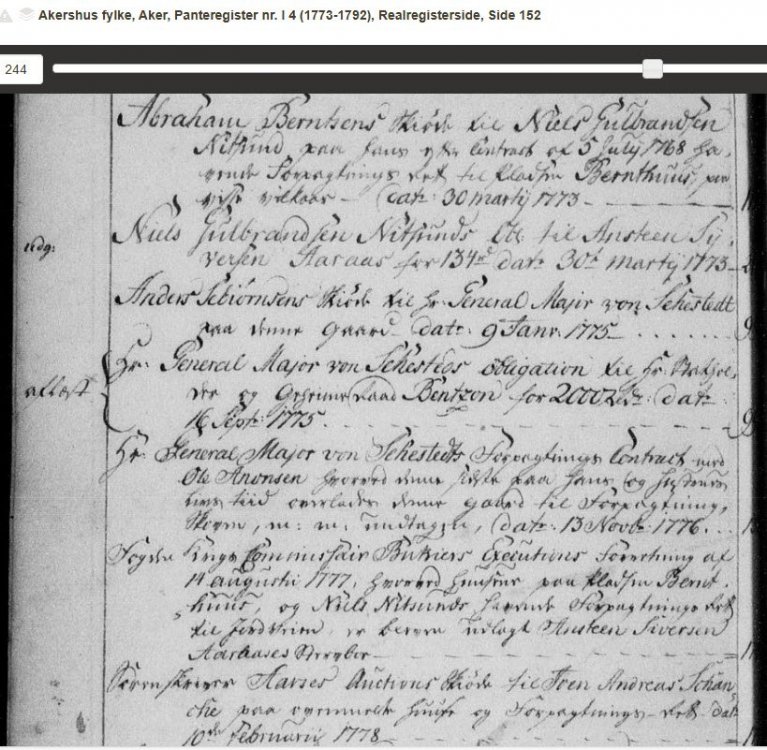 Akershus fylke, Aker, Panteregister nr. I 4 (1773-1792), Realregisterside, Side 152
244
Abraham Berntsens Skiøde til Niels Gulbrandsen
Nitsund paa hans Contract af 5 July 1768 ha-
vende Forpagtnings Ret til Pladsen Bernthuus, paa
visse vilkaar - dat: 30 martij 1773
Niels Gulbrandsen Nitsunds til Ansteen Sy-
versen Aaraas for 134 dat: 30 martij 1773
Anders Schiørnsens Skiøde til Hr. General Major von Sehestedt
paa denne Gaard dat: 9 Janr. 1775
aflæst
Hr. General Major von Sehesteds obligation til Hr. Stathol-
der og Geheime Raad Bentzon for 2000 dat:
16 Sept: 1775
Hr. General Major von Sehestedts Forpagtnings Contract med
Ole Anonsen hvorved denne sidste paa hans og hustrues
livs tiid overlades denne gaard til Forpagtning,
Skoven, m: m: undtagen, dat: 13 Novbr: 1776.
Krigs Commissair Executions Forretning af
14 augusti 1777, hvorved huusene paa Pladsen Bernt-
huus, og Niels Nitsunds havende Forpagtnings Ret
til er udlagt Ansteen Siversen
Aaraases
Sorenskriver Aarses Auctions Skiøde til Iven Andreas Schan-
che paa huuse og Forpagtnings-Ret dat:
10de Februarii 1778